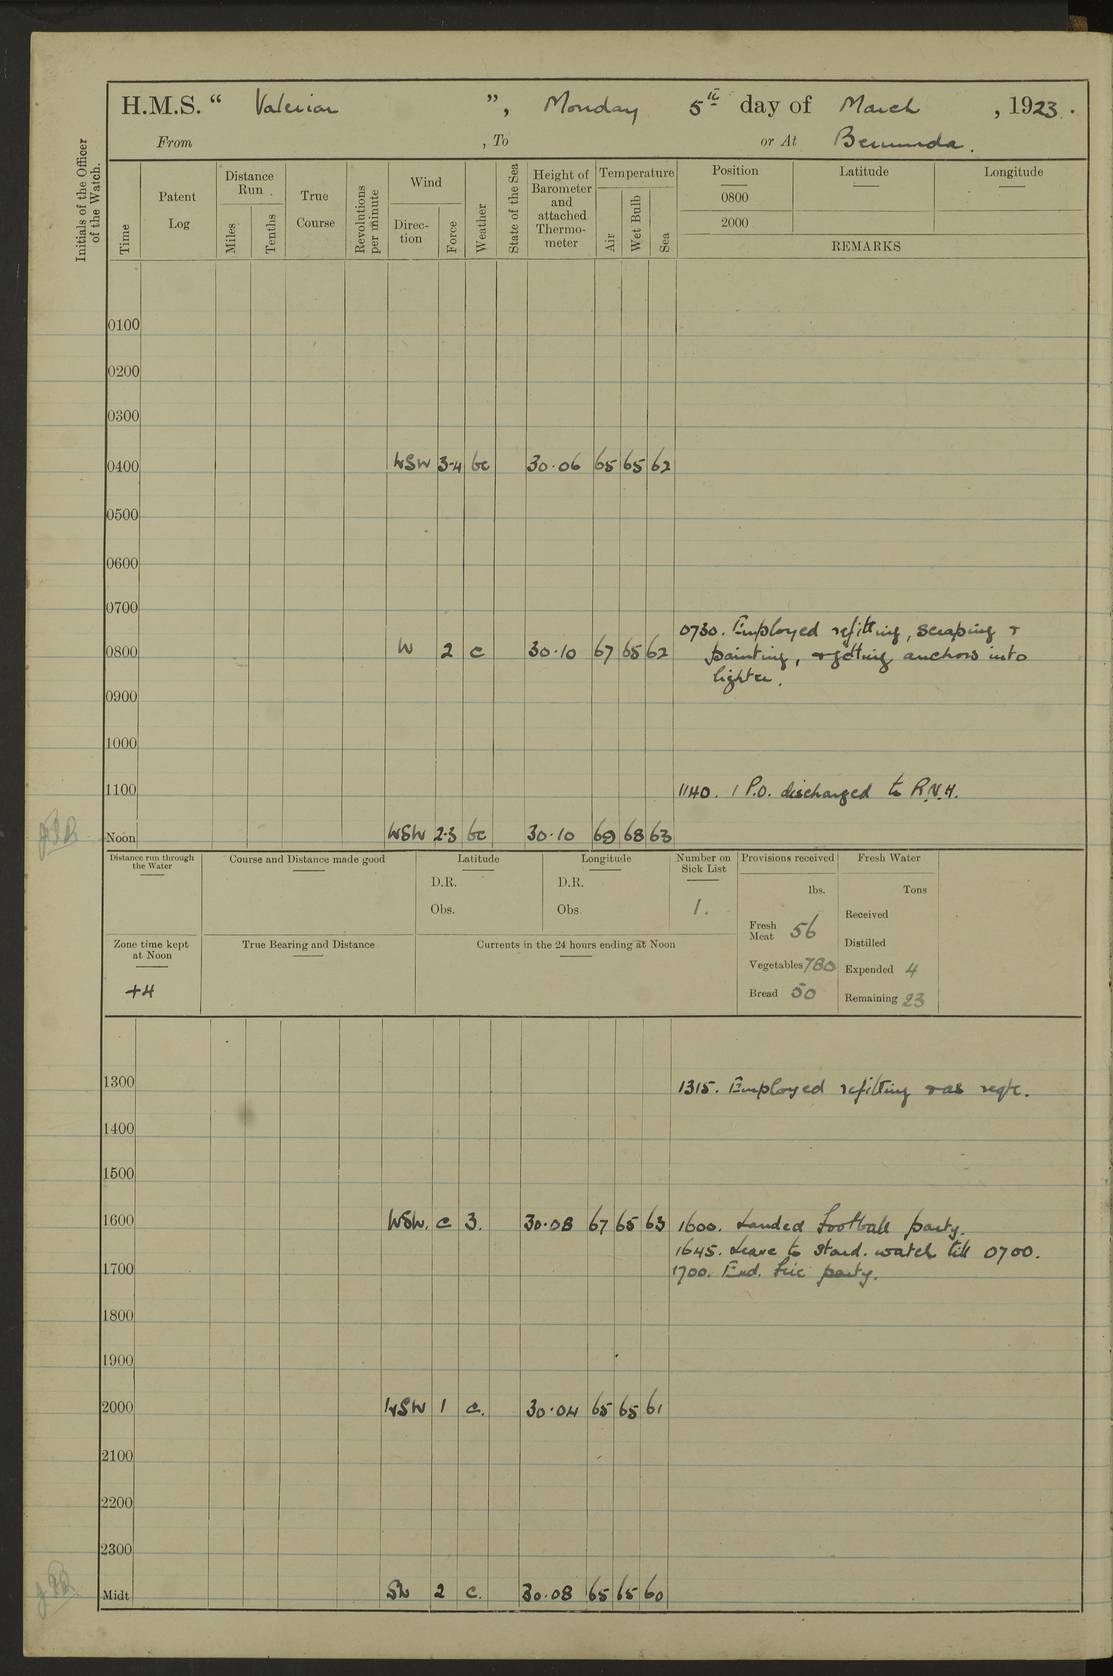 H.M.S. “ Valerian ”, Monday 5th day of March , 1923.
From , To or At Bermuda.
Initials of the Officer of the Watch.
Time
Patent Log
Distance Run
Miles
Tenths
True Course
Revolutions per minute
Wind
Direction
Force
Weather
State of the Sea
Height of Barometer and attached Thermometer
Temperature
Air
Wet Bulb
Sea
Position Latitude Longitude
0800
2000
REMARKS
0100
0200
0300
0400 WSW 3-4 bc 30.06 65 65 62
0500
0600
0700
0730. Employed refitting, scraping +
0800 W 2 c 30.10 67 65 62 painting, + getting anchors into
lighter.
0900
1000
1100 1140. 1 P.O. discharged to R.N.H.
Noon WSW 2-3 bc 30.10 69 68 63
Distance run through the Water
Course and Distance made good
Latitude
D.R.
Obs.
Longitude
D.R.
Obs.
Number on Sick List
1.
Provisions received
lbs.
Fresh Meat 56
Vegetables 780
Bread 50
Fresh Water
Tons
Received
Distilled
Expended 4
Remaining 23
Zone time kept at Noon
+4
True Bearing and Distance
Currents in the 24 hours ending at Noon
1300 1315. Employed refitting + as reqte.
1400
1500
1600 WSW. c 3. 30.08 67 65 63 1600. Landed Football party.
1645. Leave to Stard. watch till 0700.
1700 1700. End. party.
1800
1900
2000 WSW 1 c. 30.04 65 65 61
2100
2200
2300
Midt SW 2 c. 30.08 65 65 60